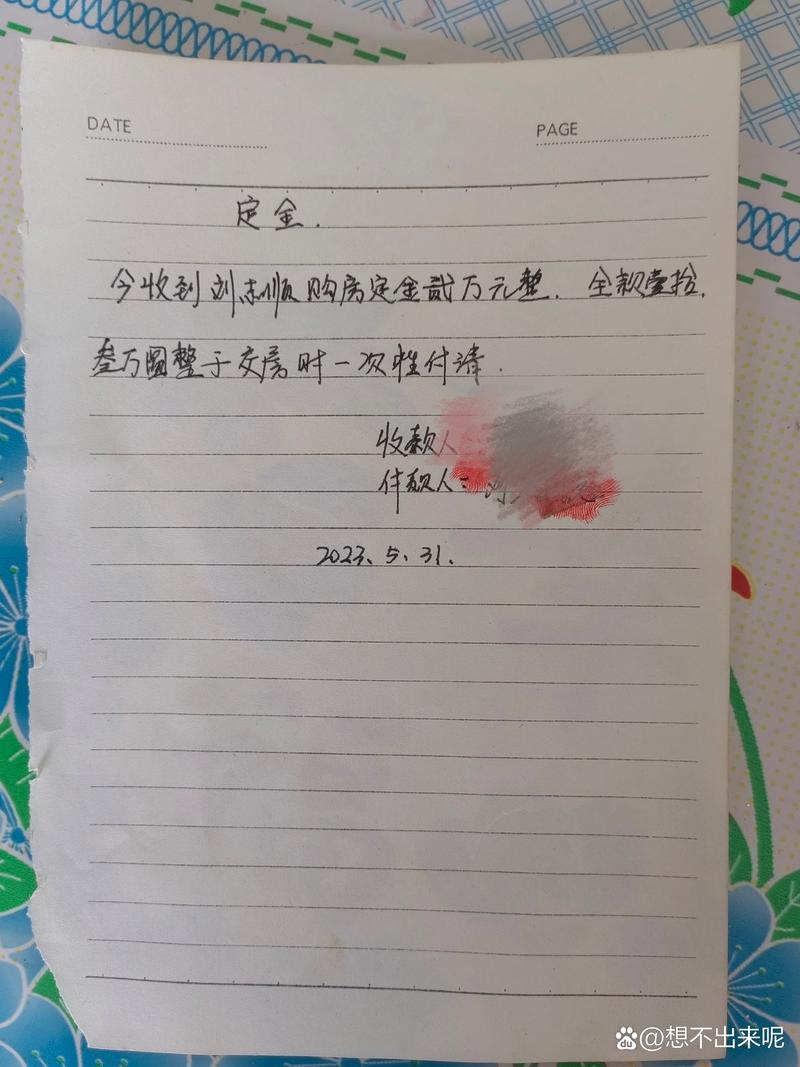 DATE
PAGE
定金.
今收到刘志顺购房定金贰万元整. 全款壹拾.
叁万圆整于交房时一次性付清.
收款人
付款人:
2023.5.31.
@想不出来呢